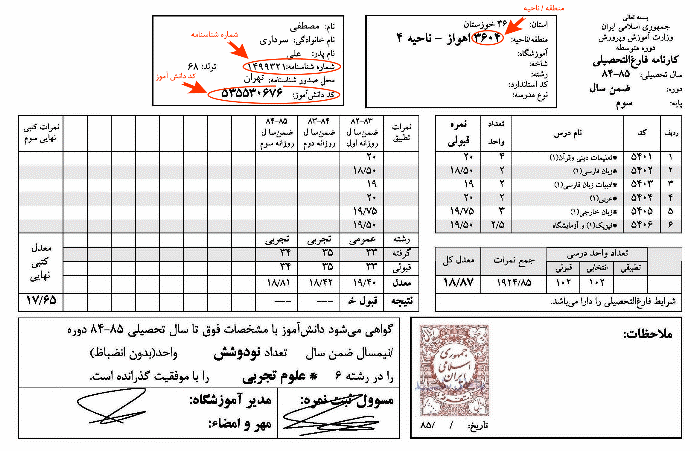 بسمه تعالی
جمهوری اسلامی ایران
وزارت آموزش و پرورش
دوره متوسطه
کارنامه فارغ‌التحصیلی
سال تحصیلی: ۸۵-۸۴
دوره: ضمن سال
پایه: سوم
منطقه / ناحیه
استان: ۳۶ خوزستان
منطقه/ناحیه: ۳۶۰۴ اهواز - ناحیه ۴
آموزشگاه:
شاخه:
رشته:
کد استاندارد:
نوع مدرسه:
نام: مصطفی
نام خانوادگی: سرداری
نام پدر: علی
شماره شناسنامه: ۱۴۹۹۳۲۱ تولد: ۶۸
محل صدور شناسنامه: تهران
کد دانش‌آموز: ۵۳۵۵۳۰۶۷۶
شماره شناسنامه
کد دانش آموز
ردیف کد نام درس تعداد واحد نمره قبولی
۱ ۵۴۰۱ *تعلیمات دینی وقرآن(۱) ۴ ۲۰
۲ ۵۴۰۲ *زبان فارسی(۱) ۲ ۱۸/۵۰
۳ ۵۴۰۳ *ادبیات زبان فارسی(۱) ۲ ۱۹
۴ ۵۴۰۴ *عربی(۱) ۲ ۲۰
۵ ۵۴۰۵ *زبان خارجی(۱) ۳ ۱۹/۷۵
۶ ۵۴۰۶ *فیزیک(۱) و آزمایشگاه ۲/۵ ۱۹/۵۰
تعداد واحد درسی جمع نمرات معدل کل
تطبیقی انتخابی قبولی
۱۰۲ ۱۰۲ ۱۹۲۴/۸۵ ۱۸/۸۷
شرایط فارغ‌التحصیلی را دارا می‌باشد.
نمرات تطبیق ۸۳-۸۲ ضمن سال روزانه اول ۸۴-۸۳ ضمن سال روزانه دوم ۸۵-۸۴ ضمن سال روزانه سوم نمرات کتبی نهایی سوم
۲۰
۱۸/۵۰
۱۹
۲۰
۱۹/۷۵
۱۹/۵۰
رشته عمومی تجربی تجربی
گرفته ۳۳ ۳۵ ۳۴
قبولی ۳۳ ۳۵ ۳۴
معدل ۱۹/۴۰ ۱۸/۴۲ ۱۸/۸۱
نتیجه قبول خ --- ---
معدل کتبی نهایی
۱۷/۶۵
گواهی می‌شود دانش‌آموز با مشخصات فوق تا سال تحصیلی ۸۵-۸۴ دوره
/نیمسال ضمن سال تعداد نودوشش واحد(بدون انضباط)
را در رشته ۶ * علوم تجربی را با موفقیت گذرانده است.
مسوول ثبت نمره: مدیر آموزشگاه:
مهر و امضاء:
ملاحظات:
جمهوری اسلامی ایران
تاریخ: / /۸۵